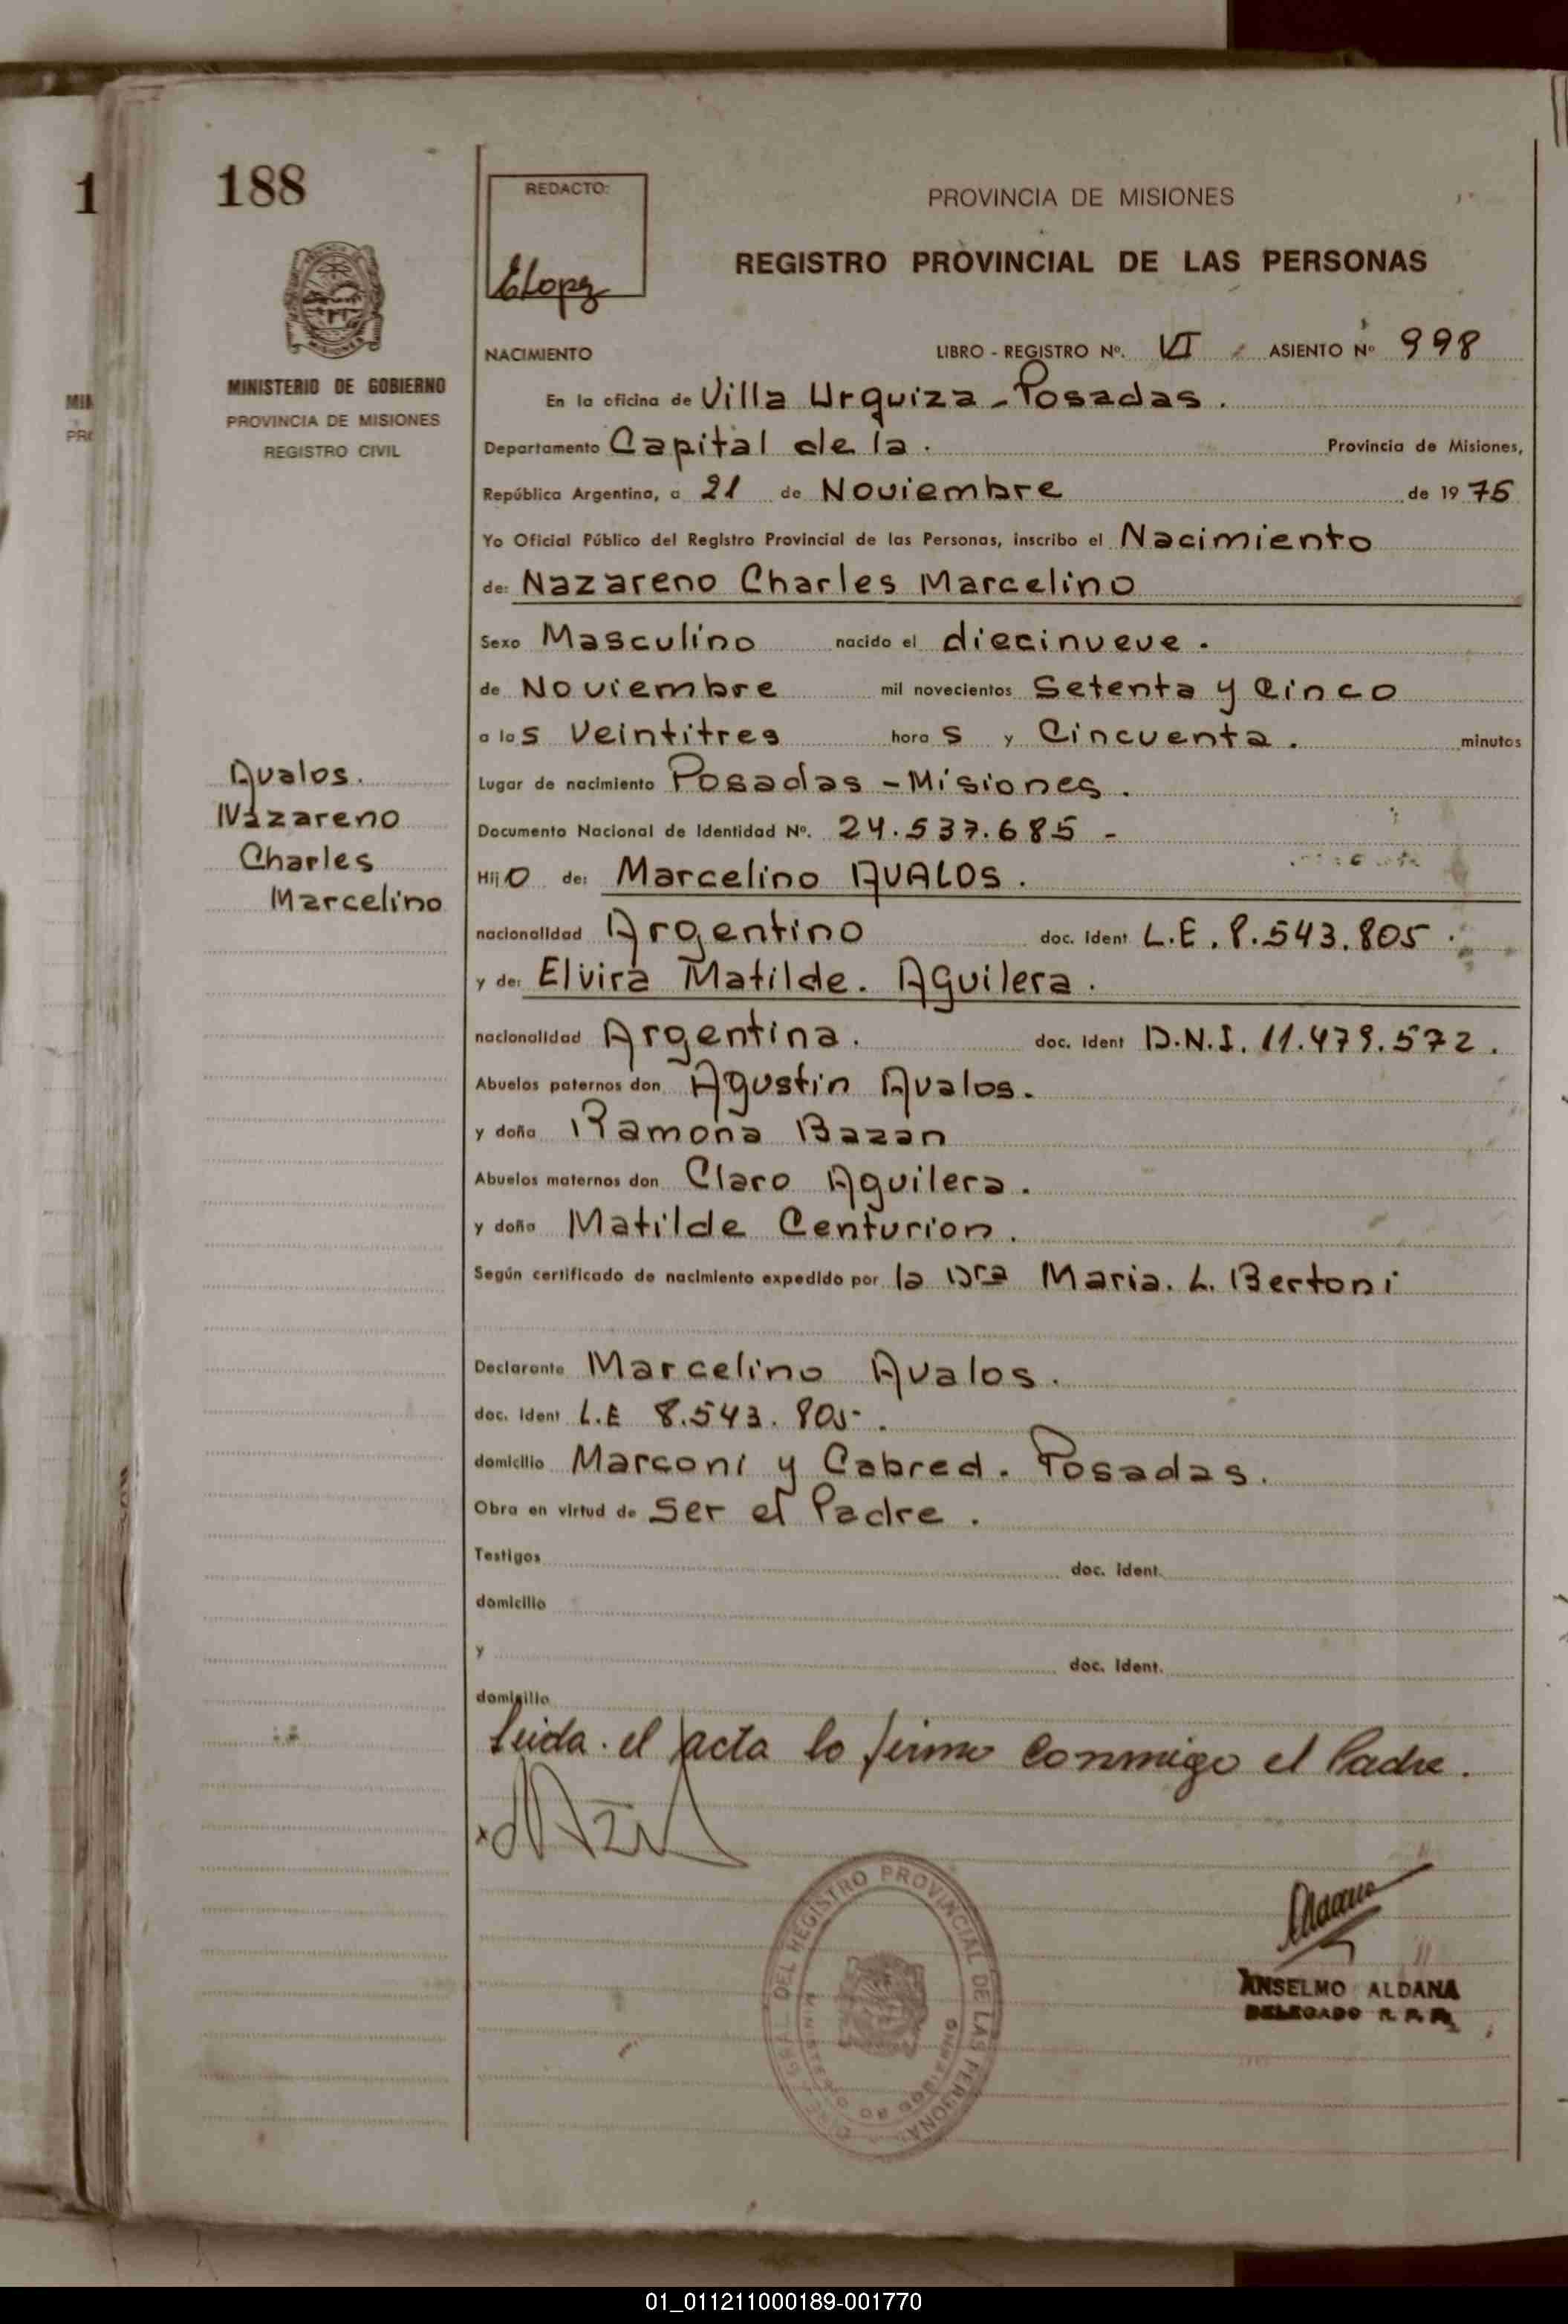 1
188
MINISTERIO DE GOBIERNO
PROVINCIA DE MISIONES
REGISTRO CIVIL
Avalos.
Nazareno
Charles
Marcelino
REDACTO:
ELopez
PROVINCIA DE MISIONES
REGISTRO PROVINCIAL DE LAS PERSONAS
NACIMIENTO LIBRO - REGISTRO Nº. VI ASIENTO Nº 998
En la oficina de Villa Urquiza - Posadas.
Departamento Capital de la. Provincia de Misiones,
República Argentina, a 21 de Noviembre de 1975
Yo Oficial Público del Registro Provincial de las Personas, inscribo el Nacimiento
de: Nazareno Charles Marcelino
Sexo Masculino nacido el diecinueve.
de Noviembre mil novecientos Setenta y Cinco
a las Veintitres horas y Cincuenta. minutos
Lugar de nacimiento Posadas - Misiones.
Documento Nacional de Identidad Nº. 24.537.685 -
Hijo de: Marcelino AVALOS.
nacionalidad Argentino doc. Ident L.E. 8.543.805.
y de: Elvira Matilde. Aguilera.
nacionalidad Argentina. doc. Ident D.N.I. 11.479.572.
Abuelos paternos don Agustin Avalos.
y doña Ramona Bazan
Abuelos maternos don Claro Aguilera.
y doña Matilde Centurion.
Según certificado de nacimiento expedido por la Dra Maria. L. Bertoni
Declarante Marcelino Avalos.
doc. Ident L.E 8.543.805.
domicilio Marconi y Cabred. Posadas.
Obra en virtud de Ser el Padre.
Testigos doc. Ident.
domicilio
y doc. Ident.
domicilio
Leida. el acta lo firma conmigo el Padre.
DEL REGISTRO PROVINCIAL DE LAS PERSONAS
ANSELMO ALDANA
DELEGADO R. P. P.
01_011211000189-001770